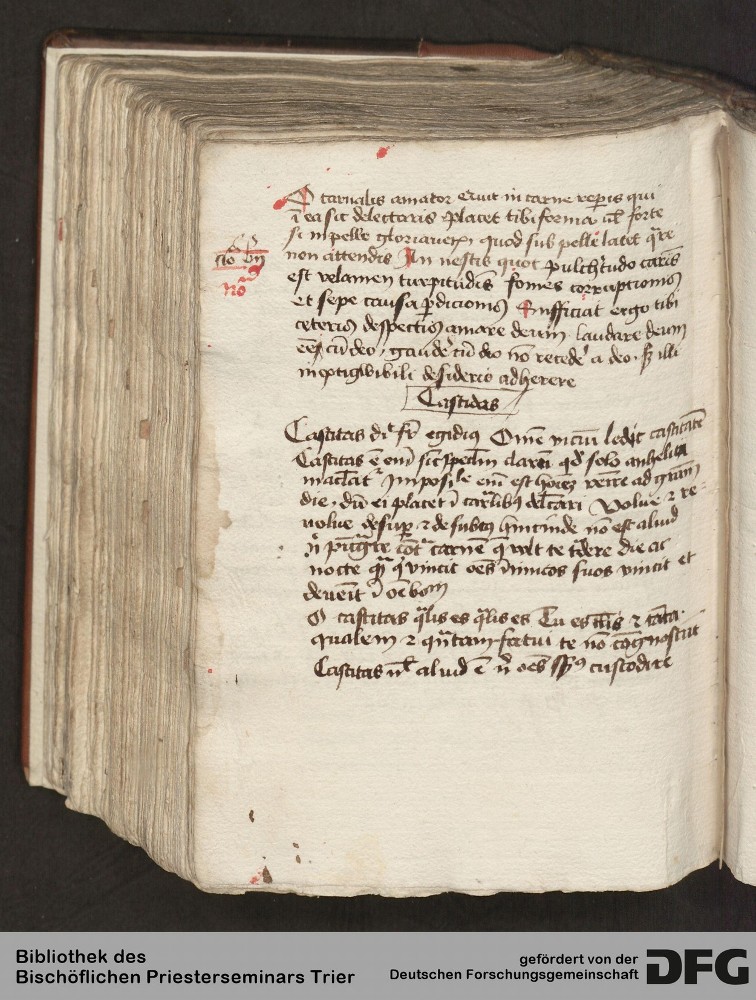 O carnalis amator qui in carne reperis qui
i ea sic delectaris placet tibi forma uel forte
si in pelle gloriaueris, quod sub pelle latet qre
non attendis An nescis quot pulchtudo carnis
est velamen turpitudis fomes corruptionis
et sepe causa pdicionis Sufficiat ergo tibi
ceteris despectis amare deum laudare deum
cu deo, gaude cu deo no recede a deo, sz illi
desiderio adherere
Castidas
Castitas di fr egidius Ome viciu ledit castitate
Castitas e eni sic specłm claru qd solo anhelitu
maclat Imposile eni est hoiez venire ad gram
die, du ei placet i carlibus dlcari Volue z re
uolue desup z desubtus hincinde no est aliud
n pugre cot carne q vult te tdere die ac
nocte qua q vincit oes inimicos suos vincit et
deueit i oe bonu
O castitas qlis es qlis es Tu es tlis z tata
qualem z qntam fatui te no congnoscut
Castitas nl aliud e n oes custodire
Bibliothek des
Bischöflichen Priesterseminars Trier
gefördert von der
Deutschen Forschungsgemeinschaft
DFG